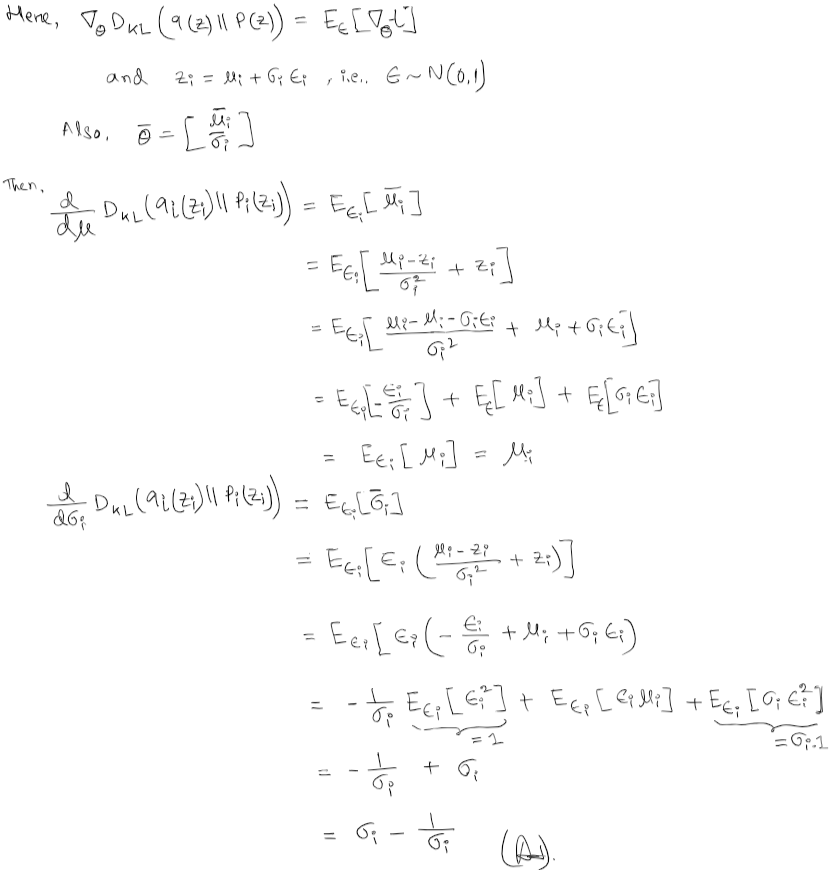 Here, ∇_θ D_KL (q(z) || P(z)) = E_ϵ[∇_θ t]
and z_i = μ_i + σ_i ϵ_i , i.e.. ϵ ~ N(0,1)
Also, θ̄ = [ μ̄_i / σ̄_i ]
Then,
d/dμ D_KL (q_i(z_i) || P_i(z_i)) = E_ϵ_i [ μ̄_i ]
= E_ϵ_i [ (μ_i - z_i)/σ_i^2 + z_i ]
= E_ϵ_i [ (μ_i - μ_i - σ_i ϵ_i)/σ_i^2 + μ_i + σ_i ϵ_i ]
= E_ϵ_i [ - ϵ_i/σ_i ] + E_ϵ[ μ_i ] + E_ϵ[ σ_i ϵ_i ]
= E_ϵ_i [ μ_i ] = μ_i
d/dσ_i D_KL (q_i(z_i) || P_i(z_i)) = E_ϵ_i [ σ̄_i ]
= E_ϵ_i [ ϵ_i ( (μ_i - z_i)/σ_i^2 + z_i ) ]
= E_ϵ_i [ ϵ_i ( - ϵ_i/σ_i + μ_i + σ_i ϵ_i )
= - 1/σ_i E_ϵ_i [ ϵ_i^2 ] + E_ϵ_i [ ϵ_i μ_i ] + E_ϵ_i [ σ_i ϵ_i^2 ]
=1 =σ_i.1
= - 1/σ_i + σ_i
= σ_i - 1/σ_i